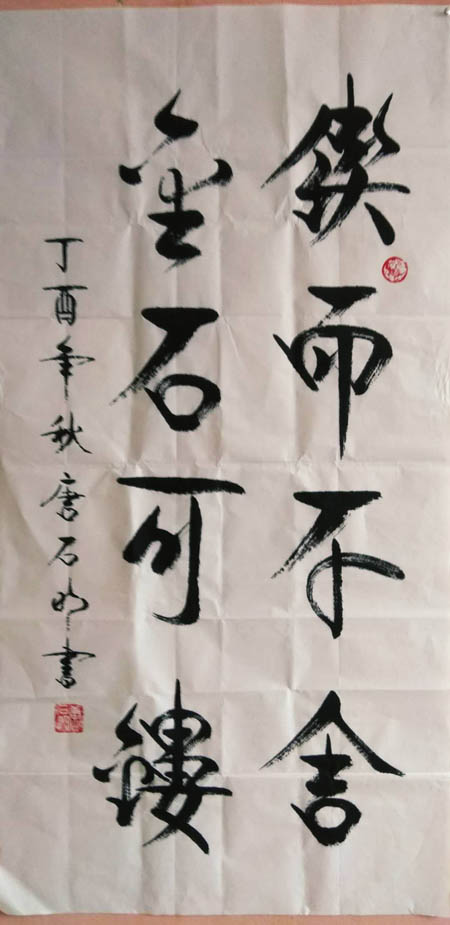 锲而不舍
金石可镂
丁酉年秋唐石明书